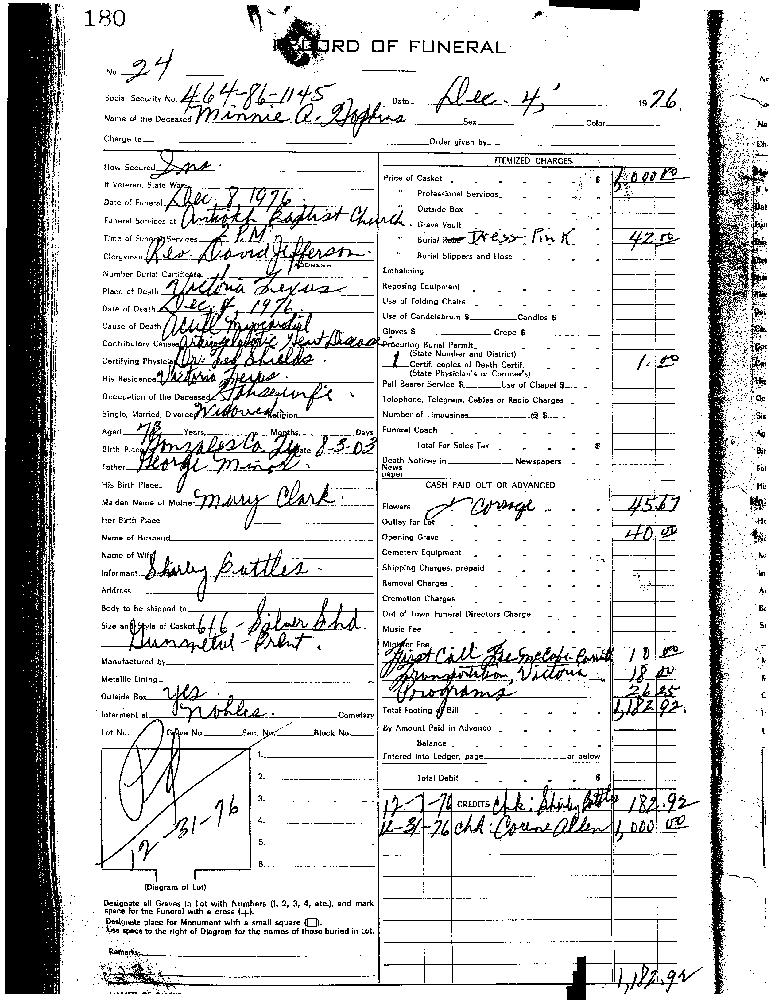 180
RECORD OF FUNERAL
No. 24
Social Security No. 464-86-1145 Date Dec. 4, 1976
Name of the Deceased Minnie A. Hopkins Sex Color
Charge to Order given by
How Secured Ins.
If Veteran, State War
Date of Funeral Dec. 8 1976
Funeral Services at Antioch Baptist Church
Time of Funeral Services 2 P.M.
Clergyman Rev. David Jefferson
Number Burial Certificate
Place of Death Victoria Texas
Date of Death Dec. 4, 1976
Cause of Death
Contributory Causes Heart Disease
Certifying Physician Dr. Shields
His Residence Victoria Texas
Occupation of the Deceased Housewife
Single, Married, Divorced Widowed Religion
Aged 73 Years Months Days
Birth Place Gonzales Co. Tx Date 8-3-03
Father George Minor
His Birth Place
Maiden Name of Mother Mary Clark
Her Birth Place
Name of Husband
Name of Wife
Informant Shirley Battles
Address
Body to be shipped to
Size and Style of Casket 6/6 - Silver Shd.
Gunmetal -
Manufactured by
Metallic Lining
Outside Box yes
Interment at Nobles Cemetery
Lot No. Grave No. Sec. No. Block No.
1.
2.
3.
4.
5.
6.
Pd
12-31-76
(Diagram of Lot)
Designate all Graves in Lot with Numbers (1, 2, 3, 4, etc.), and mark
space for the Funeral with a cross (+).
Designate place for Monument with a small square (□).
Use space to the right of Diagram for the names of those buried in Lot.
Remarks
ITEMIZED CHARGES
Price of Casket $ 1,000 00
" Professional Services
" Outside Box
" Grave Vault
" Burial Robe Dress: Pink 42.00
" Burial Slippers and Hose
Embalming
Reposing Equipment
Use of Folding Chairs
Use of Candelabrum $ Candles $
Gloves $ Crepe $
Procuring Burial Permit
(State Number and District)
1 Certif. copies of Death Certif. 1.00
(State Physician's or Coroner's)
Pall Bearer Service $ Use of Chapel $
Telephone, Telegram, Cables or Radio Charges
Number of Limousines @ $
Funeral Coach
Total For Sales Tax $
Death Notices in Newspapers
News
paper
CASH PAID OUT OR ADVANCED
Flowers & Corsage 45.67
Outlay for Lot
Opening Grave 40.00
Cemetery Equipment
Shipping Charges, prepaid
Removal Charges
Cremation Charges
Out of Town Funeral Directors Charge
Music Fee
Minister Fee
First Call Fee McCabe 10 00
Transportation, Victoria 18 00
Programs 26.25
Total Footing of Bill 1,182.92
By Amount Paid in Advance
Balance
Entered into Ledger, page or below
Total Debit $
12-7-76 CREDITS Chk: Shirley Battles 182.92
12-31-76 Chk: Corine Allen 1,000 00
1,182.92